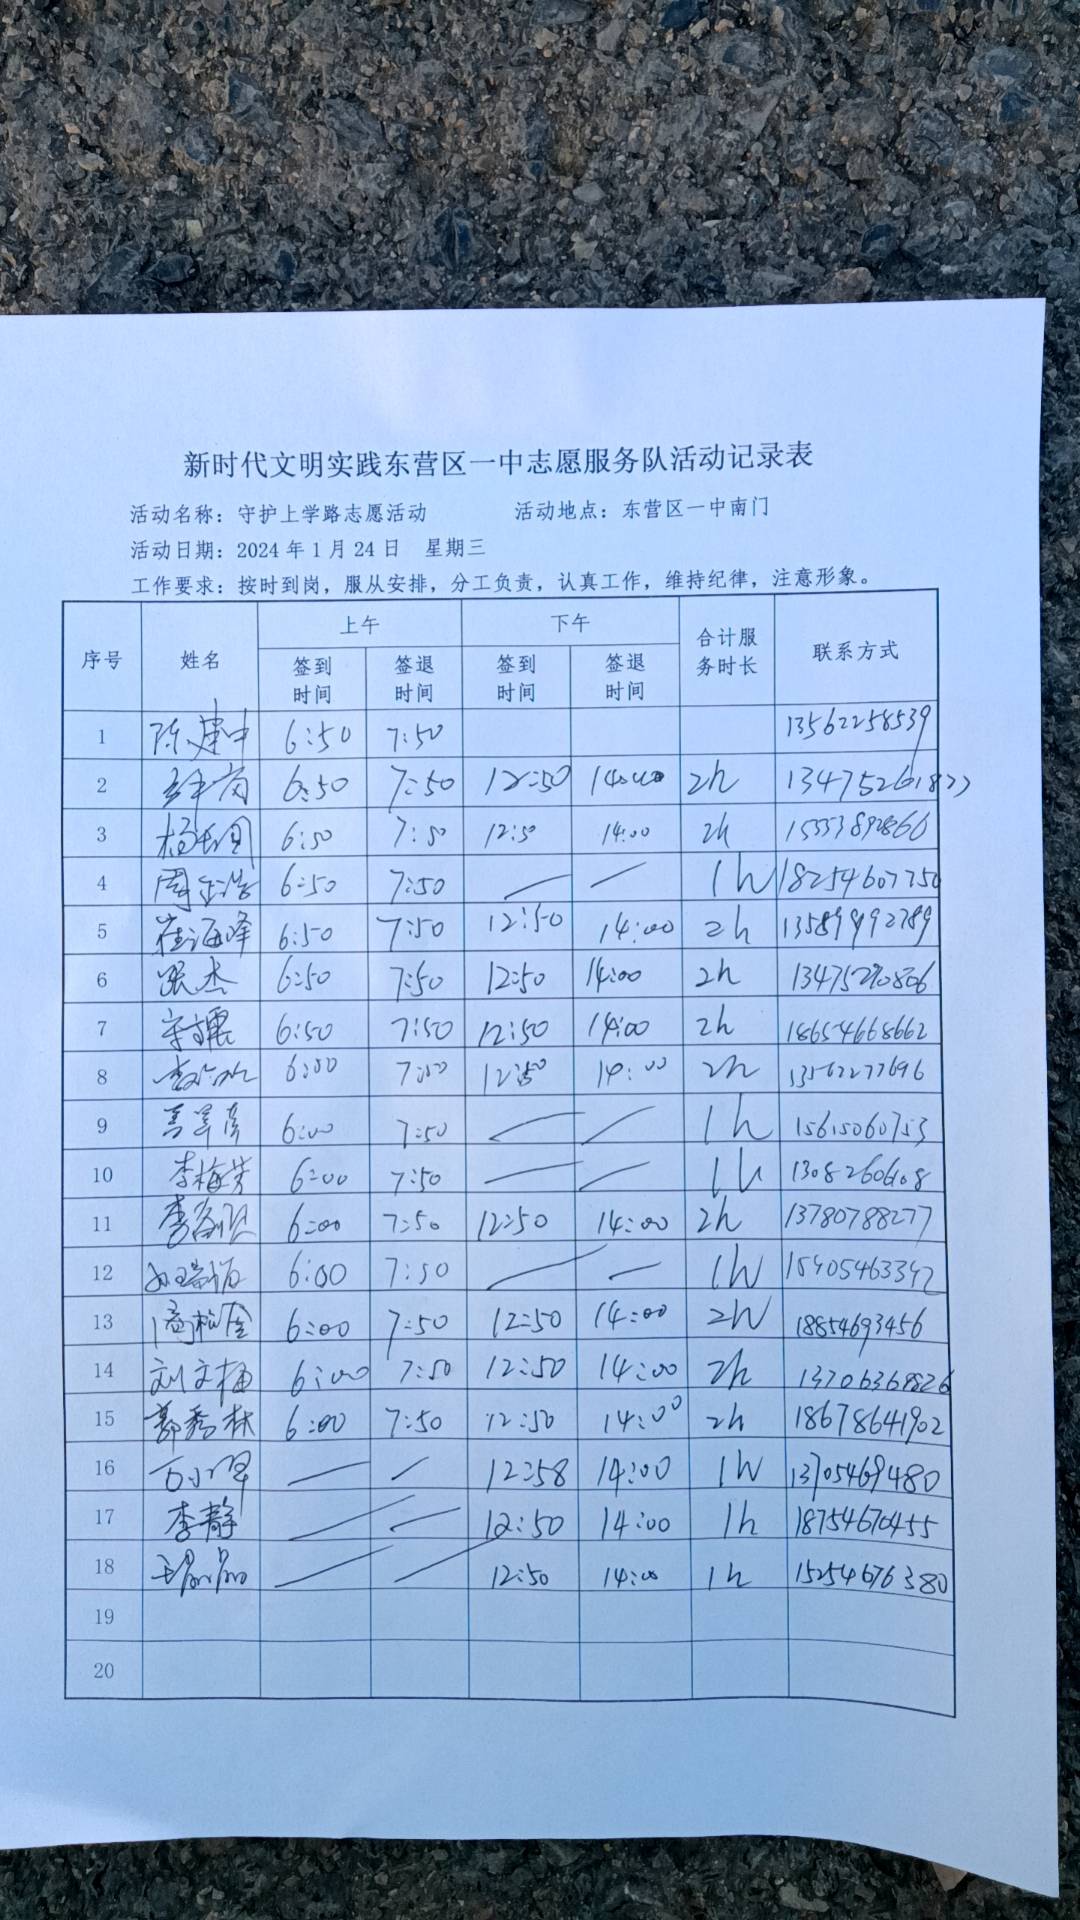 新时代文明实践东营区一中志愿服务队活动记录表
活动名称：守护上学路志愿活动 活动地点：东营区一中南门
活动日期：2024年1月24日 星期三
工作要求：按时到岗，服从安排，分工负责，认真工作，维持纪律，注意形象。
序号 姓名 上午 下午 合计服务时长 联系方式
签到时间 签退时间 签到时间 签退时间
1 陈建中 6:50 7:50 13562258539
2 6:50 7:50 12:50 14:00 2h
3 6:50 7:50 12:50 14:00 2h 15553892866
4 6:50 7:50 — — 1h 18254607750
5 崔海峰 6:50 7:50 12:50 14:00 2h 13589992789
6 张杰 6:50 7:50 12:50 14:00 2h 13475290806
7 6:50 7:50 12:50 14:00 2h 18654668662
8 6:00 7:50 12:50 14:00 2h 13562277696
9 6:00 7:50 — — 1h 15615060753
10 李梅芳 6:00 7:50 — — 1h
11 6:00 7:50 12:50 14:00 2h 13780788277
12 6:00 7:50 — — 1h 15405463342
13 商松金 6:00 7:50 12:50 14:00 2h 18854693456
14 刘文梅 6:00 7:50 12:50 14:00 2h 13706368826
15 郭秀林 6:00 7:50 12:50 14:00 2h 18678641902
16 — — 12:58 14:00 1h 13705469480
17 李静 — — 12:50 14:00 1h 18754670455
18 王晶晶 — — 12:50 14:00 1h 15254676380
19
20